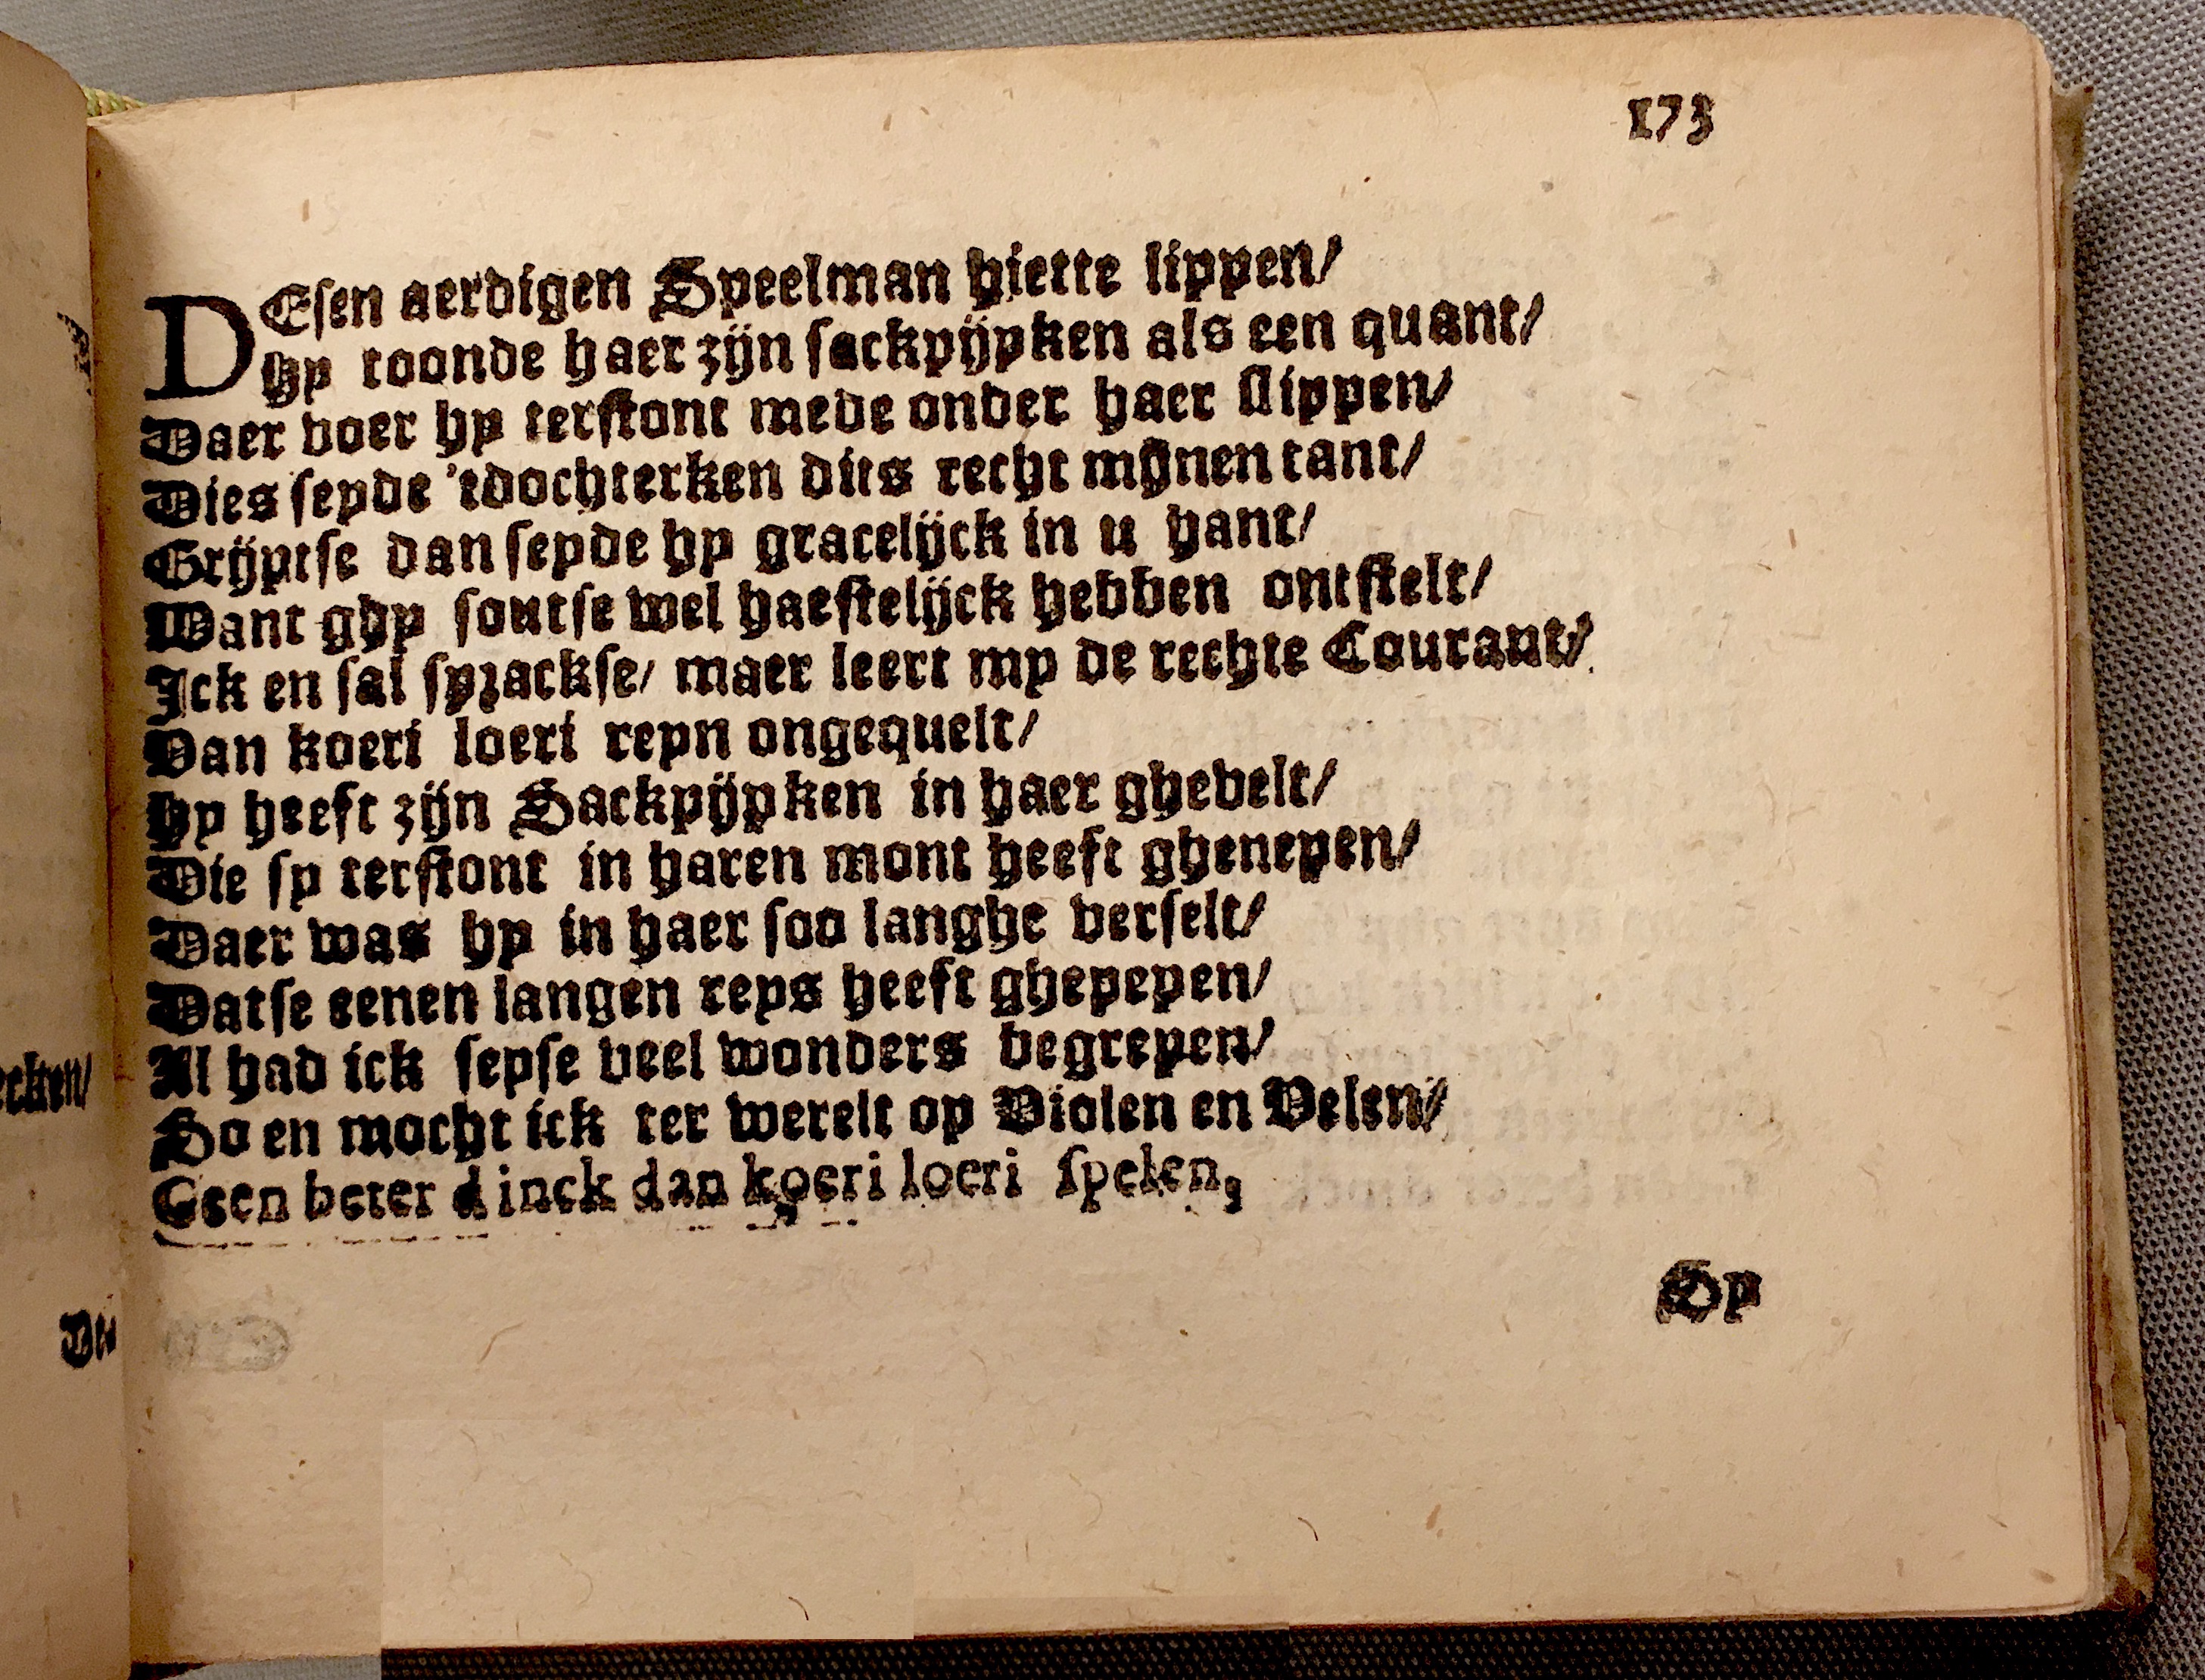 173
DEsen aerdigen Speelman hiette lippen/
Hy toonde haer zijn sackpijpken als een quant/
Daer voer hy terstont mede onder haer slippen/
Dies seyde 'tdochterken dits recht mijnen tant/
Grijptse dan seyde hy gracelijck in u hant/
Want ghy soutse wel haestelijck hebben ontstelt/
Ick en sal sprackse/ maer leert my de rechte Courant/
Van koeri loeri reyn ongequelt/
Hy heeft zijn Sackpijpken in haer ghevelt/
Die sy terstont in haren mont heeft ghenepen/
Daer was hy in haer soo langhe verselt/
Datse eenen langen reys heeft ghepepen/
Al had ick seyse veel wonders begrepen/
So en mocht ick ter werelt op Violen en Velen/
Geen beter dinck dan koeri loeri spelen,
Sy